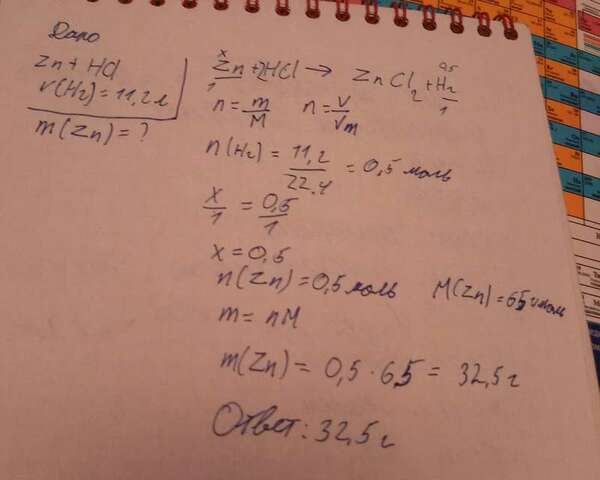 Дано
Zn + HCl
V(H₂) = 11,2 л
m(Zn) = ?
x 0,5
Zn + 2HCl → ZnCl₂ + H₂
1 1
n = m/M n = V/Vm
n(H₂) = 11,2/22,4 = 0,5 моль
x/1 = 0,5/1
x = 0,5
n(Zn) = 0,5 моль M(Zn) = 65 г/моль
m = nM
m(Zn) = 0,5 · 65 = 32,5 г
Ответ: 32,5 г